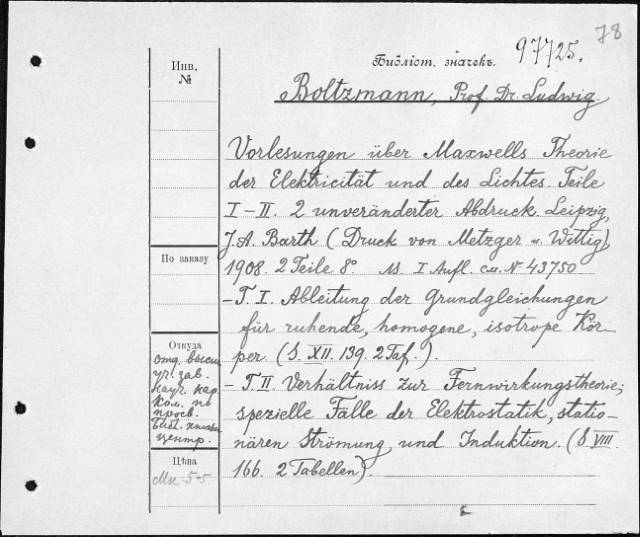 78
97725.
Инв.
№
Библіот. значекъ.
Boltzmann, Prof. Dr. Ludwig.
Vorlesungen über Maxwells Theorie
der Elektricität und des Lichtes. Teile
I–II. 2 unveränderter Abdruck. Leipzig,
J. A. Barth (Druck von Metzger u. Wittig),
По заказу
1908. 2 Teile 8°. I Aufl. см. № 43750
– T. I. Ableitung der Grundgleichungen
für ruhende, homogene, isotrope Kör-
per. (S. XII. 139. 2 Taf.).
Откуда
отд. высш.
уч. зав.
науч. над
Ком. по
просв.
Библ.
центр.
– T. II. Verhältniss zur Fernwirkungstheorie;
spezielle Fälle der Elektrostatik, statio-
nären Strömung und Induktion. (S. VIII.
166. 2 Tabellen).
Цѣна
Мк 5-5